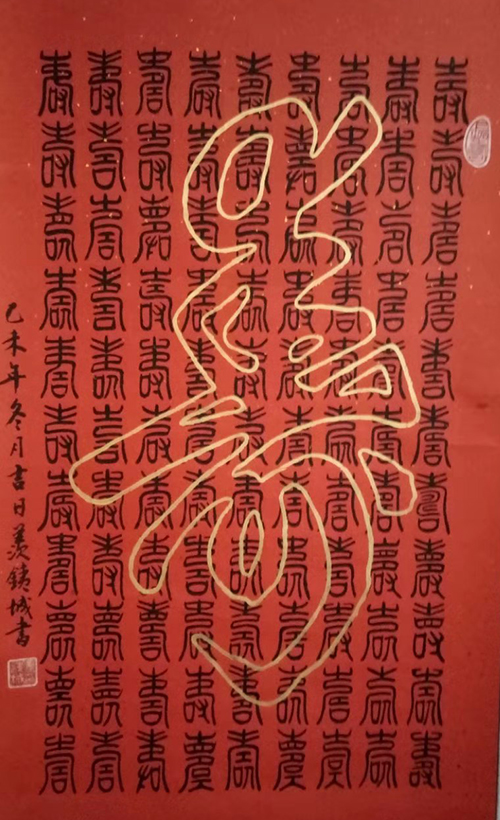 壽壽壽壽壽壽壽壽壽壽壽
壽壽壽壽壽壽壽壽壽壽壽
壽壽壽壽壽壽壽壽壽壽壽
壽壽壽壽壽壽壽壽壽壽壽
壽壽壽壽壽壽壽壽壽壽壽
壽壽壽壽壽壽壽壽壽壽壽
壽壽壽壽壽壽壽壽壽壽壽
壽壽壽壽壽壽壽壽壽壽壽
壽壽壽壽壽壽壽壽壽壽壽
壽
未年冬月日城書